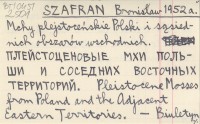 SZAFRAN Bronisław 1952a.
Mchy plejstoceńskie Polski i sąsied-
nich obszarów wschodnich.
ПЛЕЙСТОЦЕНОВЫЕ МХИ ПОЛЬ-
ШИ И СОСЕДНИХ ВОСТОЧНЫХ
ТЕРРИТОРИЙ. Pleistocene Mosses
from Poland and the Adjacent
Eastern Territories. – Biuletyn